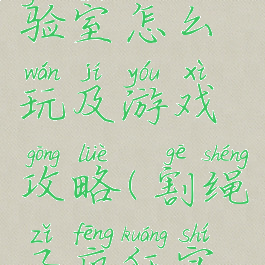 验室怎么
wán jí yóu xì
玩及游戏
gōng lüè gē shéng
攻略(割绳
zǐ fēng kuáng shí
子疯狂实